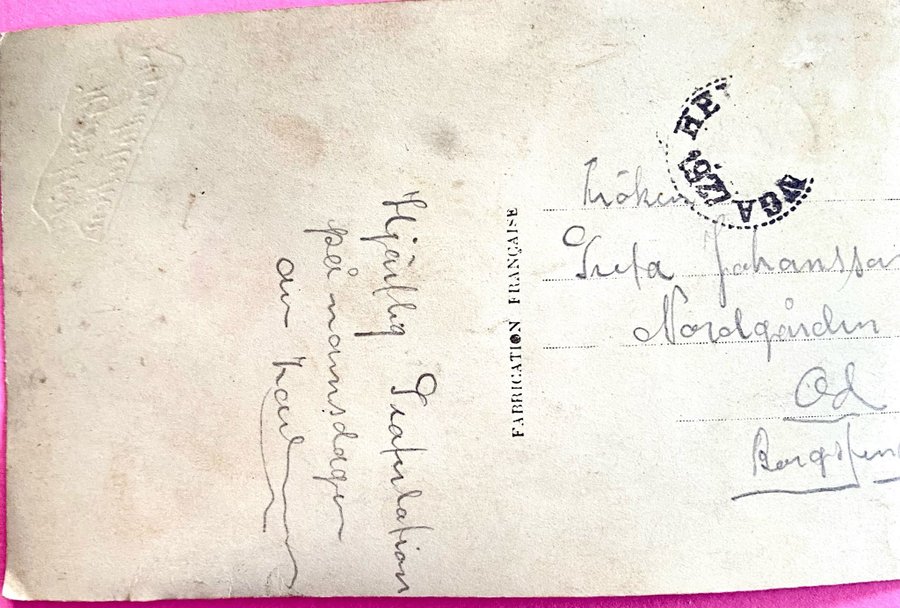 Hjärtlig Gratulation
på namnsdagen
av
FABRICATION FRANÇAISE
Fröken
Greta Johansson
Nordgården
Od